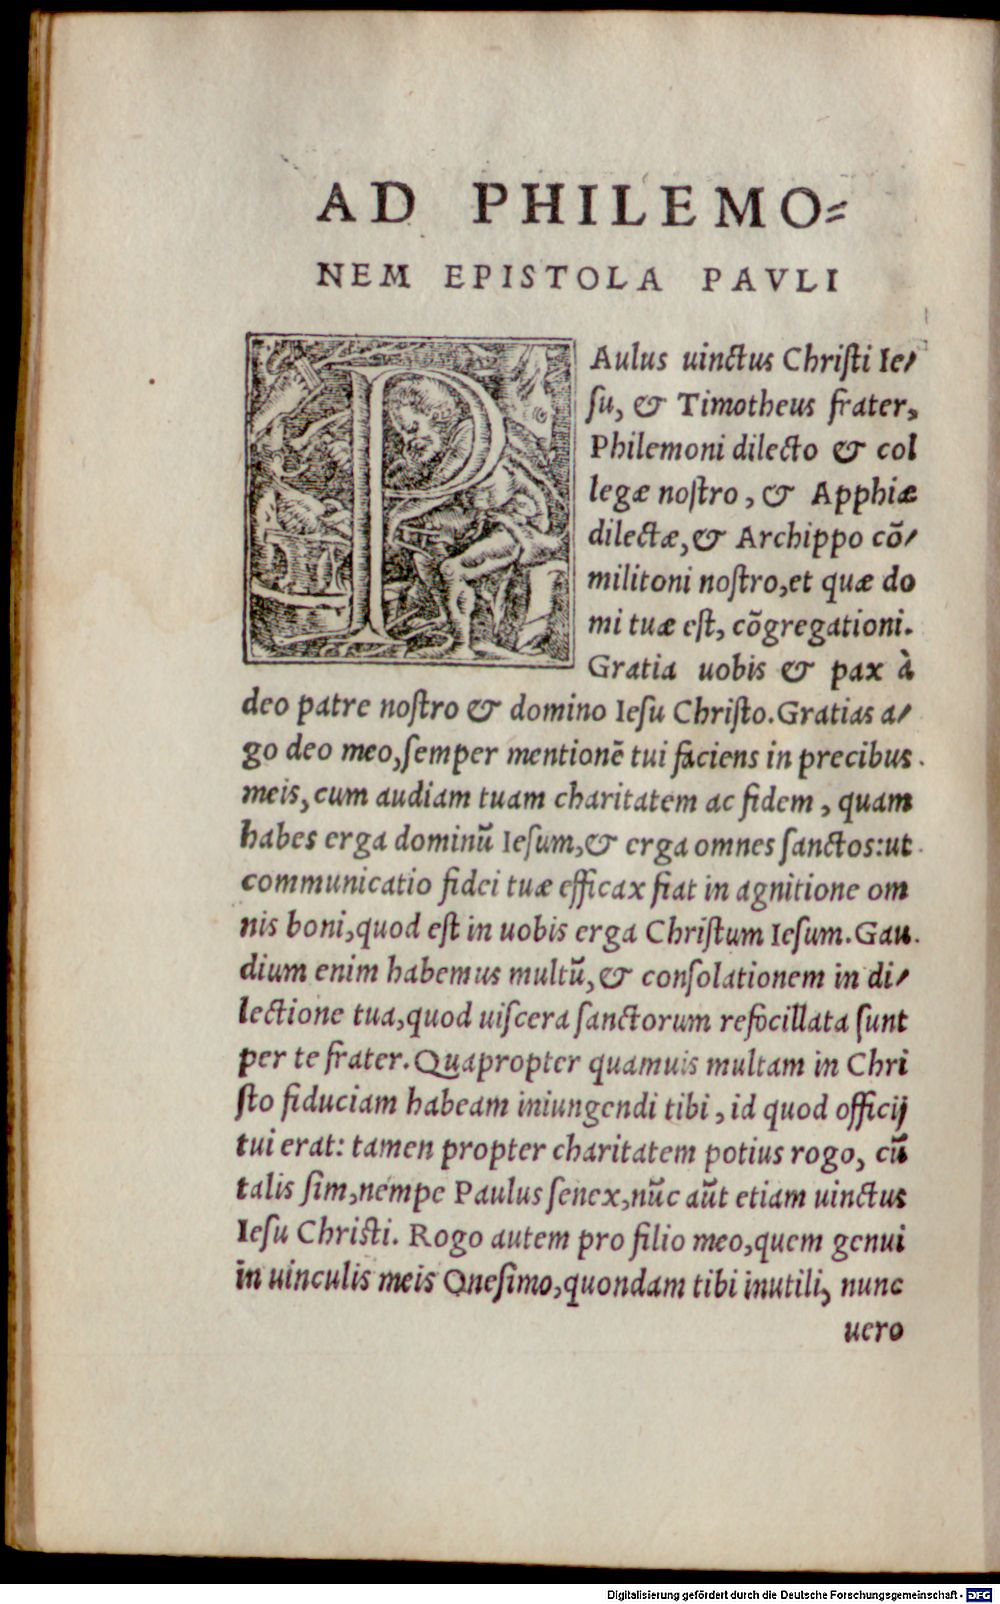 AD PHILEMO⸗
NEM EPISTOLA PAVLI
PAulus uinctus Chriſti Ie⸗
ſu, & Timotheus frater,
Philemoni dilecto & col
legæ noſtro, & Apphiæ
dilectæ, & Archippo cō⸗
militoni noſtro, et quæ do
mi tuæ eſt, cōgregationi.
Gratia uobis & pax à
deo patre noſtro & domino Ieſu Chriſto. Gratias a⸗
go deo meo, ſemper mentionē tui faciens in precibus
meis, cum audiam tuam charitatem ac fidem, quam
habes erga dominū Ieſum, & erga omnes ſanctos: ut
communicatio fidei tuæ efficax fiat in agnitione om
nis boni, quod eſt in uobis erga Chriſtum Ieſum. Gau
dium enim habemus multū, & conſolationem in di⸗
lectione tua, quod uiſcera ſanctorum refocillata ſunt
per te frater. Quapropter quamuis multam in Chri
ſto fiduciam habeam iniungendi tibi, id quod officij
tui erat: tamen propter charitatem potius rogo, cū
talis ſim, nempe Paulus ſenex, nūc aūt etiam uinctus
Ieſu Chriſti. Rogo autem pro filio meo, quem genui
in uinculis meis Oneſimo, quondam tibi inutili, nunc
uero
Digitalisierung gefördert durch die Deutsche Forschungsgemeinschaft - DFG